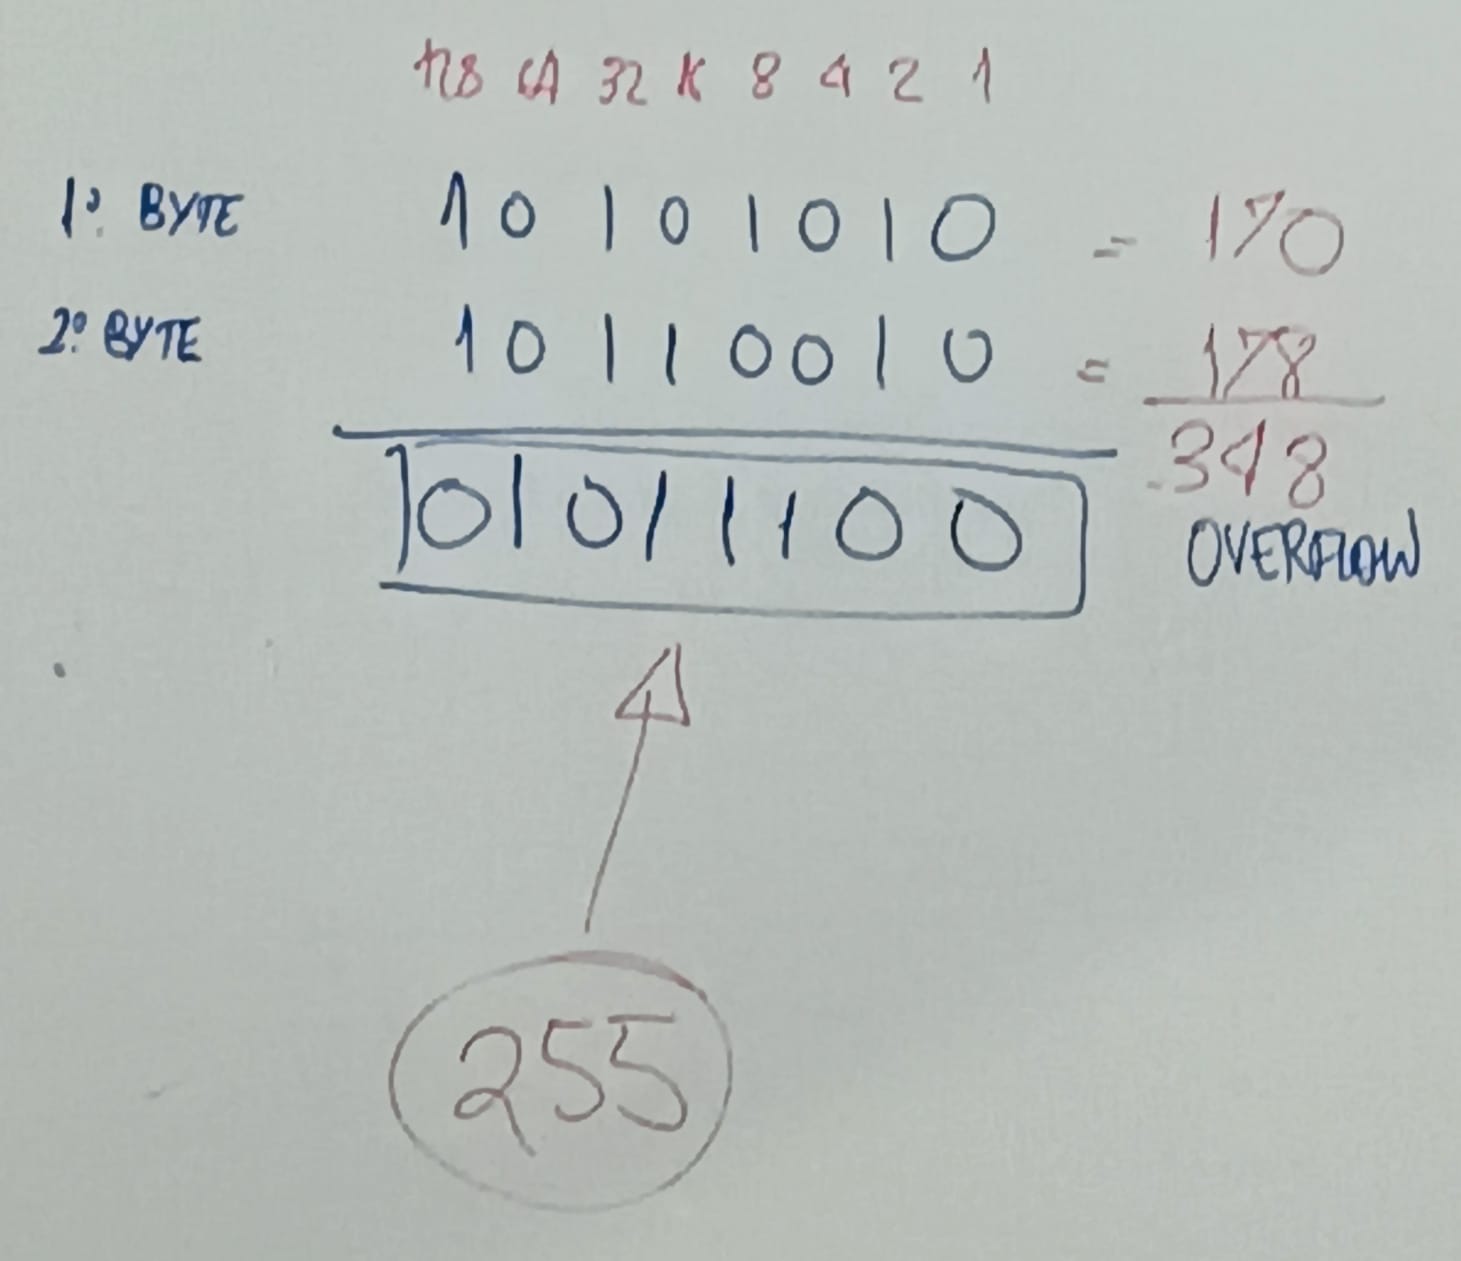 128 64 32 16 8 4 2 1
1º BYTE 10101010 = 170
2º BYTE 10110010 = 178
101011100 348
OVERFLOW
255